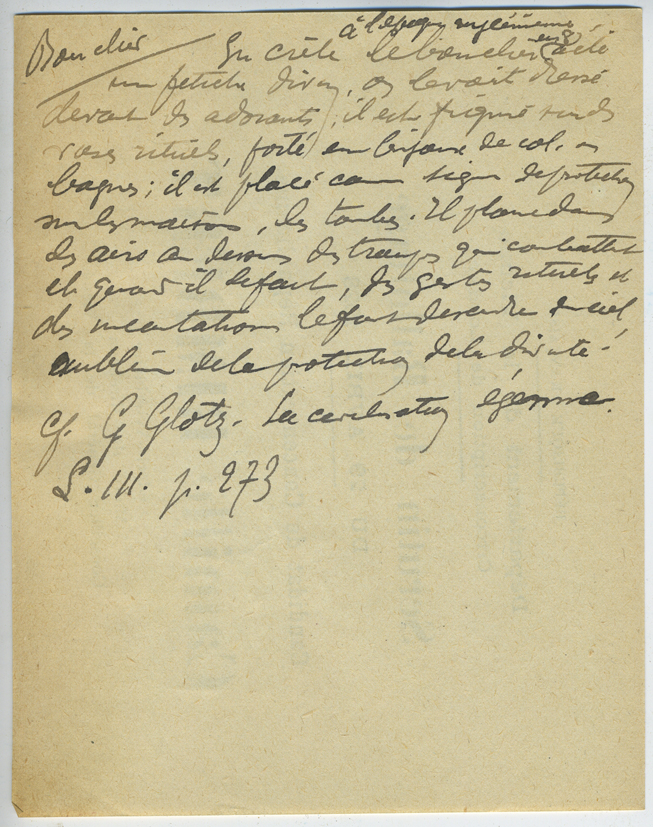 à l'époque mycénienne
Bouclier En crète le bouclier en 8 a été
un fétiche divin, on le voit dressé
devant des adorants ; il est figuré sur des
vases rituels, porté en bijoux de col, en
bagues ; il est placé comme signe de protection
sur les maisons, les tombes. Il plane dans
les airs au dessus des troupes qui combattent
et quand il le faut, des gestes rituels et
des incantations le font descendre du ciel
emblème de la protection de la divinité !
cf. G Glotz. La civilisation égéenne.
L. III. p. 273